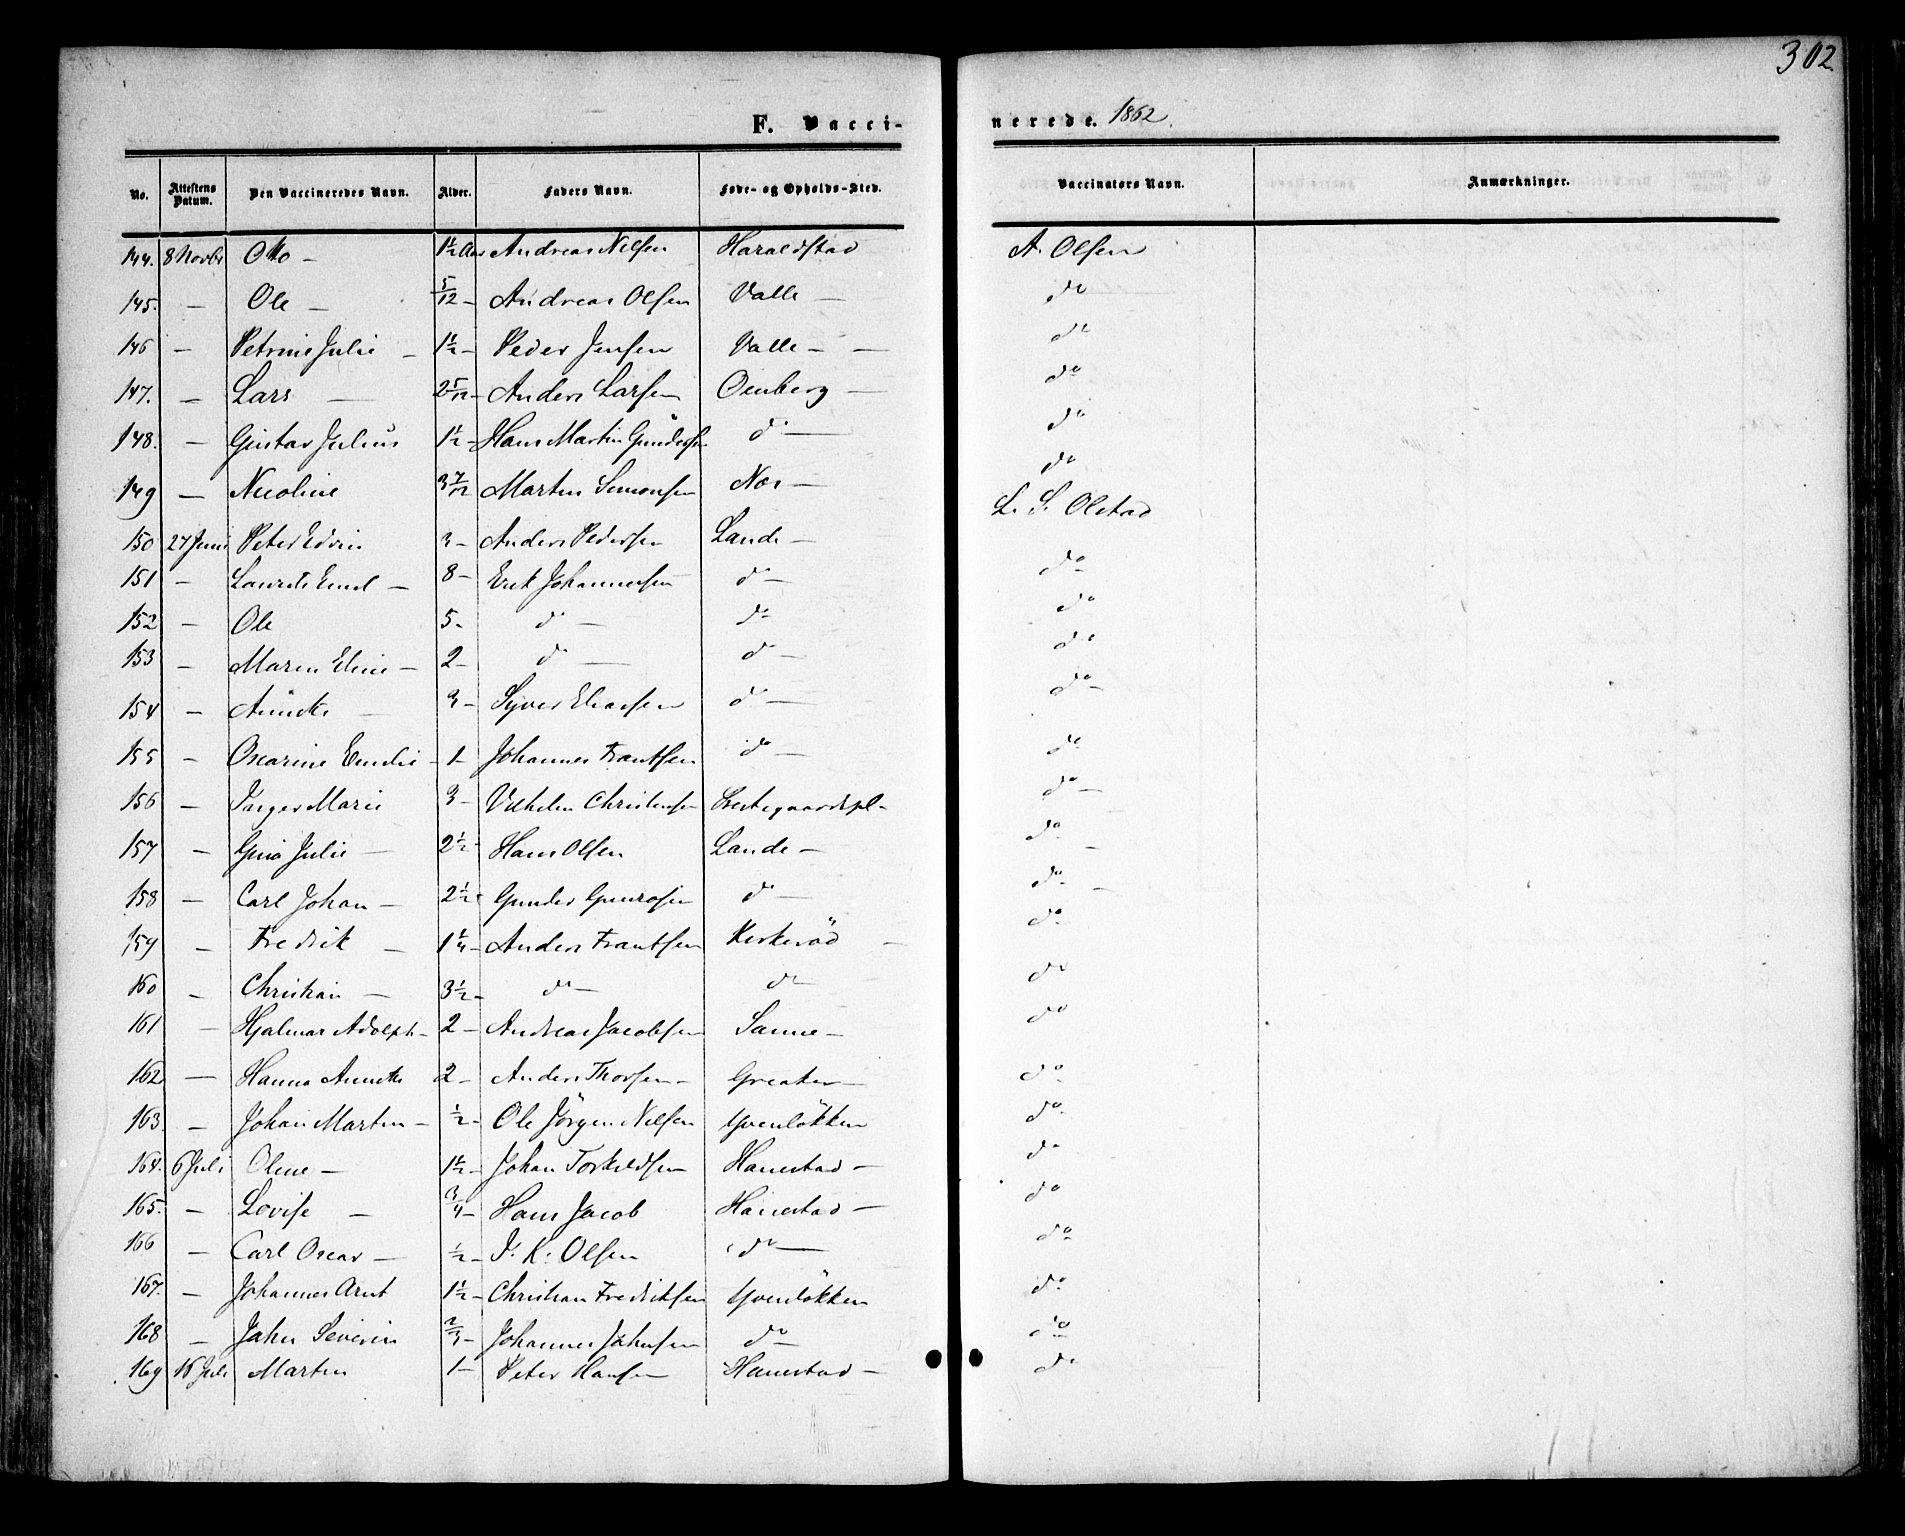 302
F. Vaccinerede. 1862.
No. Attestens Datum. Den Vaccineredes Navn. Alder. Faders Navn. Føde- og Opholds-Sted. Vaccinators Navn. Anmærkninger.
144. 8 Novbr Otto – 1½ Aar Andreas Nilsen Haraldstad A. Olsen
145. – Ole – 5/12 – Andreas Olsen Valle – do
146 – Petrine Julie – 1½ – Peder Jensen Valle – – do
147. – Lars – 2 5/12 – Anders Larsen Oenberg – do
148. – Gustav Julius 1½ – Hans Martin Gundersen do – do
149 – Nicoline 3 7/12 Martin Simonsen Nes – do
150 27 Juni Peter Edvin 3 – Anders Pedersen Lande – L. S. Olstad
151 – Laurits Emil – 8 – Erik Johannesen do – do
152 – Ole 5. do – do do
153 – Maren Eline – 2 – do – do – do
154 – Annete – 3 – Syver Eliassen do – do –
155 – Oscarine Emilie – 1 Johannes Frantsen do – do
156 – Inger Marie 3 – Vilhelm Christensen Prestegaardspl – do –
157 – Gina Julie – 2½ – Hans Olsen Lande – do –
158 – Carl Johan – 2½ Gunder do – do –
159 – Fredrik – 1¼ – Anders Frantsen Kirkerød – do
160 – Christian – 3½ – do – do do
161 – Hjalmar Adolph – 2 – Andreas Jacobsen Sanne – do
162 – Hanna Annete 2 – Anders Thorsen – Greaker – do
163. – Johan Martin – ½ – Ole Jörgen Nilsen Yvenlökken do
164. 6 Juli Oline – 1½ – Johan Torkildsen Hanestad – do
165. – Lovise – 3/4 – Hans Jacob Hanestad – do
166 – Carl Oscar – ½ – J. K. Olsen do – do
167. – Johannes Arnt 1½ – Christian Fredriksen Yvenlökken do
168 – Jahn Severin 2/3 – Johannes Johnsen do do
169 16 Juli Martin 1 – Peter Hansen Hanestad – do